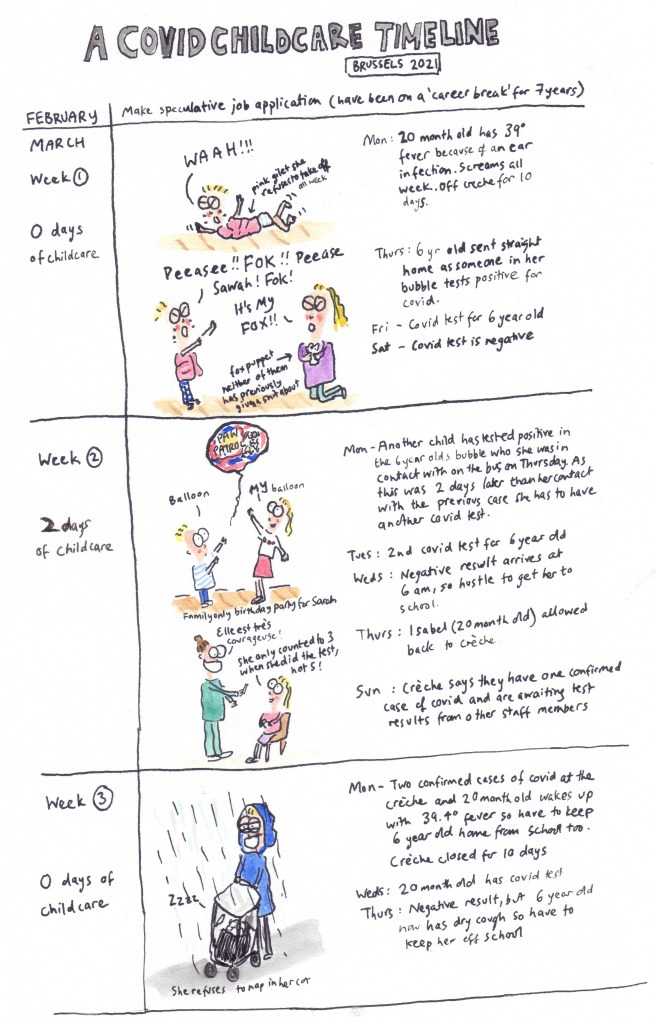 A COVID CHILDCARE TIMELINE
BRUSSELS 2021
FEBRUARY
Make speculative job application (have been on a 'career break' for 7 years)
MARCH
Week 1
0 days
of childcare
WAAH!!!
pink gilet she
refuses to take off
all week
Mon: 20 month old has 39°
fever because of an ear
infection. Screams all
week. Off crèche for 10
days.
Peeasee!! FOK!! Peease
Sawah! Fok!
It's My
FOX!!
fox puppet
neither of them
has previously
given a shit about
Thurs: 6 yr old sent straight
home as someone in her
bubble tests positive for
covid.
Fri - Covid test for 6 year old
Sat - Covid test is negative
Week 2
2 days
of childcare
PAW
PATROL
Balloon
MY balloon
Family only birthday party for Sarah
Elle est très
courageuse!
She only counted to 3
when she did the test,
not 5!
Mon - Another child has tested positive in
the 6 year olds bubble who she was in
contact with on the bus on Thursday. As
this was 2 days later than her contact
with the previous case she has to have
another covid test.
Tues: 2nd covid test for 6 year old
Weds: Negative result arrives at
6 am, so hustle to get her to
school.
Thurs: Isabel (20 month old) allowed
back to crèche
Sun: Crèche says they have one confirmed
case of covid and are awaiting test
results from other staff members
Week 3
0 days of
childcare
Zzzz
She refuses to nap in her cot
Mon - Two confirmed cases of covid at the
crèche and 20 month old wakes up
with 39.4° fever so have to keep
6 year old home from school too.
Crèche closed for 10 days
Weds: 20 month old has covid test
Thurs: Negative result, but 6 year old
now has dry cough so have to
keep her off school